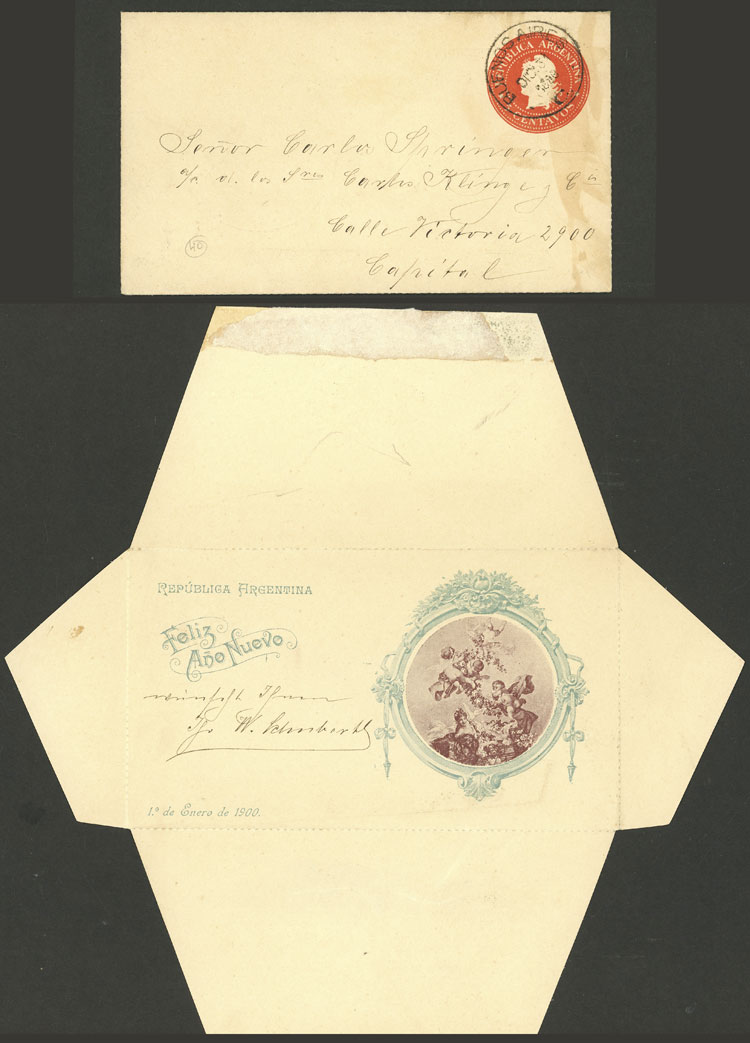 BUENOS AIRES
REPUBLICA ARGENTINA
CENTAVOS
Señor Carlos Springer
a/c d. los Sres Carlos Klinge y Cia
Calle Victoria 2900
Capítal
40
REPÚBLICA ARGENTINA
Feliz
Año Nuevo
wünscht Ihnen
W. Schubert
1.º de Enero de 1900.